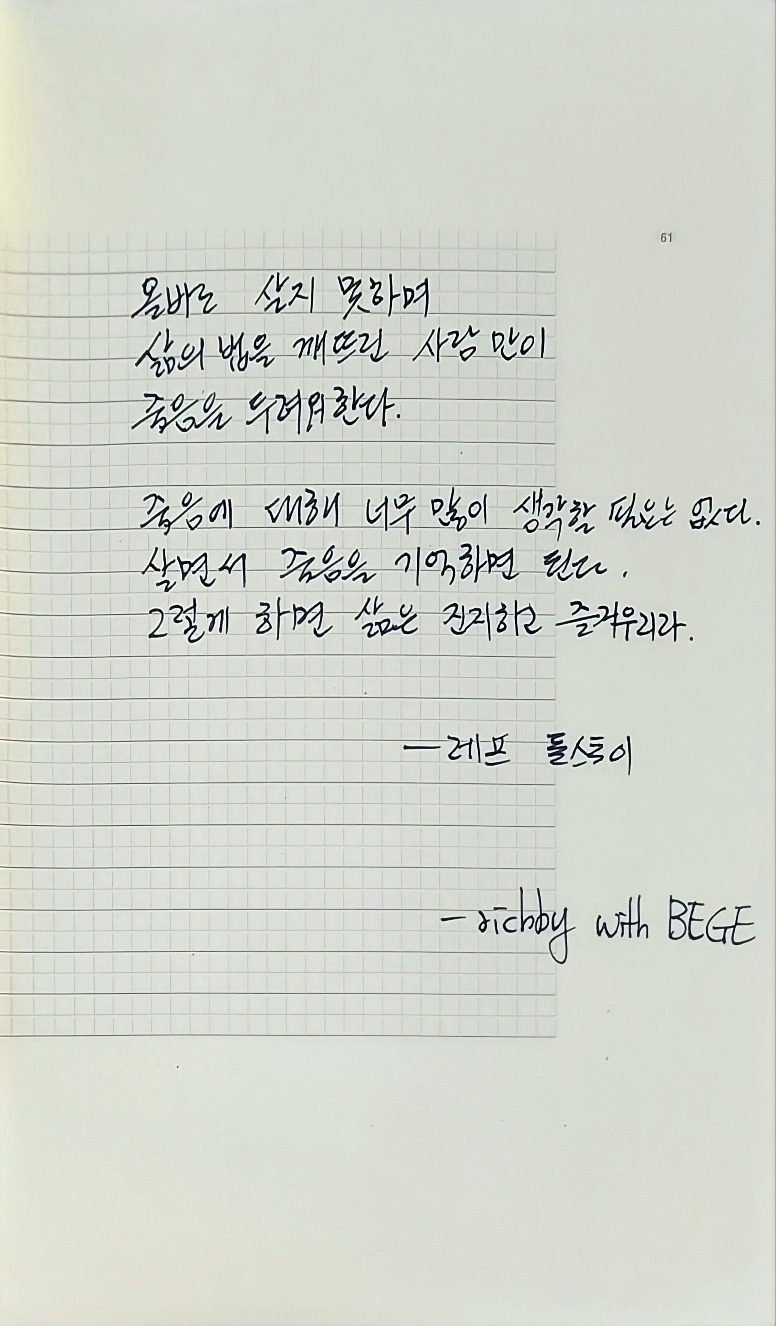 61
올바로 살지 못하며
삶의 법을 깨뜨린 사람 만이
죽음을 두려워한다.
죽음에 대해 너무 많이 생각할 필요는 없다.
살면서 죽음을 기억하면 된다.
그렇게 하면 삶은 진지하고 즐거우리라.
— 레프 톨스토이
- richby with BEGE